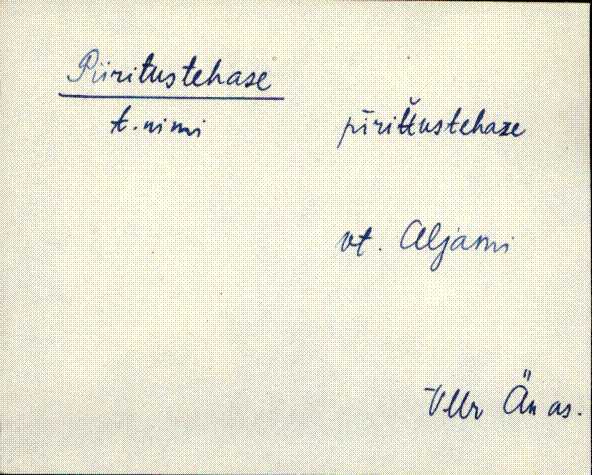 Piiritustehase
t. nimi
pīrit̆t̆ustehaze
vt. Aljami
Vllr Än as.